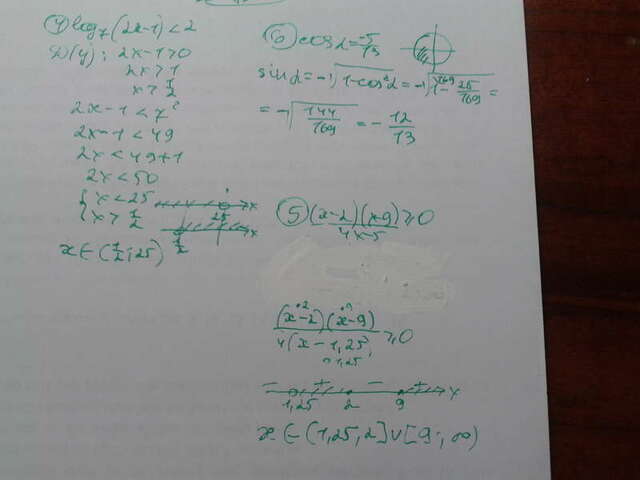 ④ log₇(2x-1)<2
D(y): 2x-1>0
2x>1
x>1/2
2x-1<7²
2x-1<49
2x<49+1
2x<50
{ x<25
x>1/2
x
25
x
1/2
x∈(1/2;25)
⑥ cos α=-5/13
sin α=-√(1-cos²α)=-√(1-25/169)=
=-√(144/169)=-12/13
⑤ (x-2)(x-9)/(4x-5)≥0
(x-2)(x-9)/(4(x-1,25))≥0
- + - + x
1,25 2 9
x∈(1,25,2]∪[9;∞)